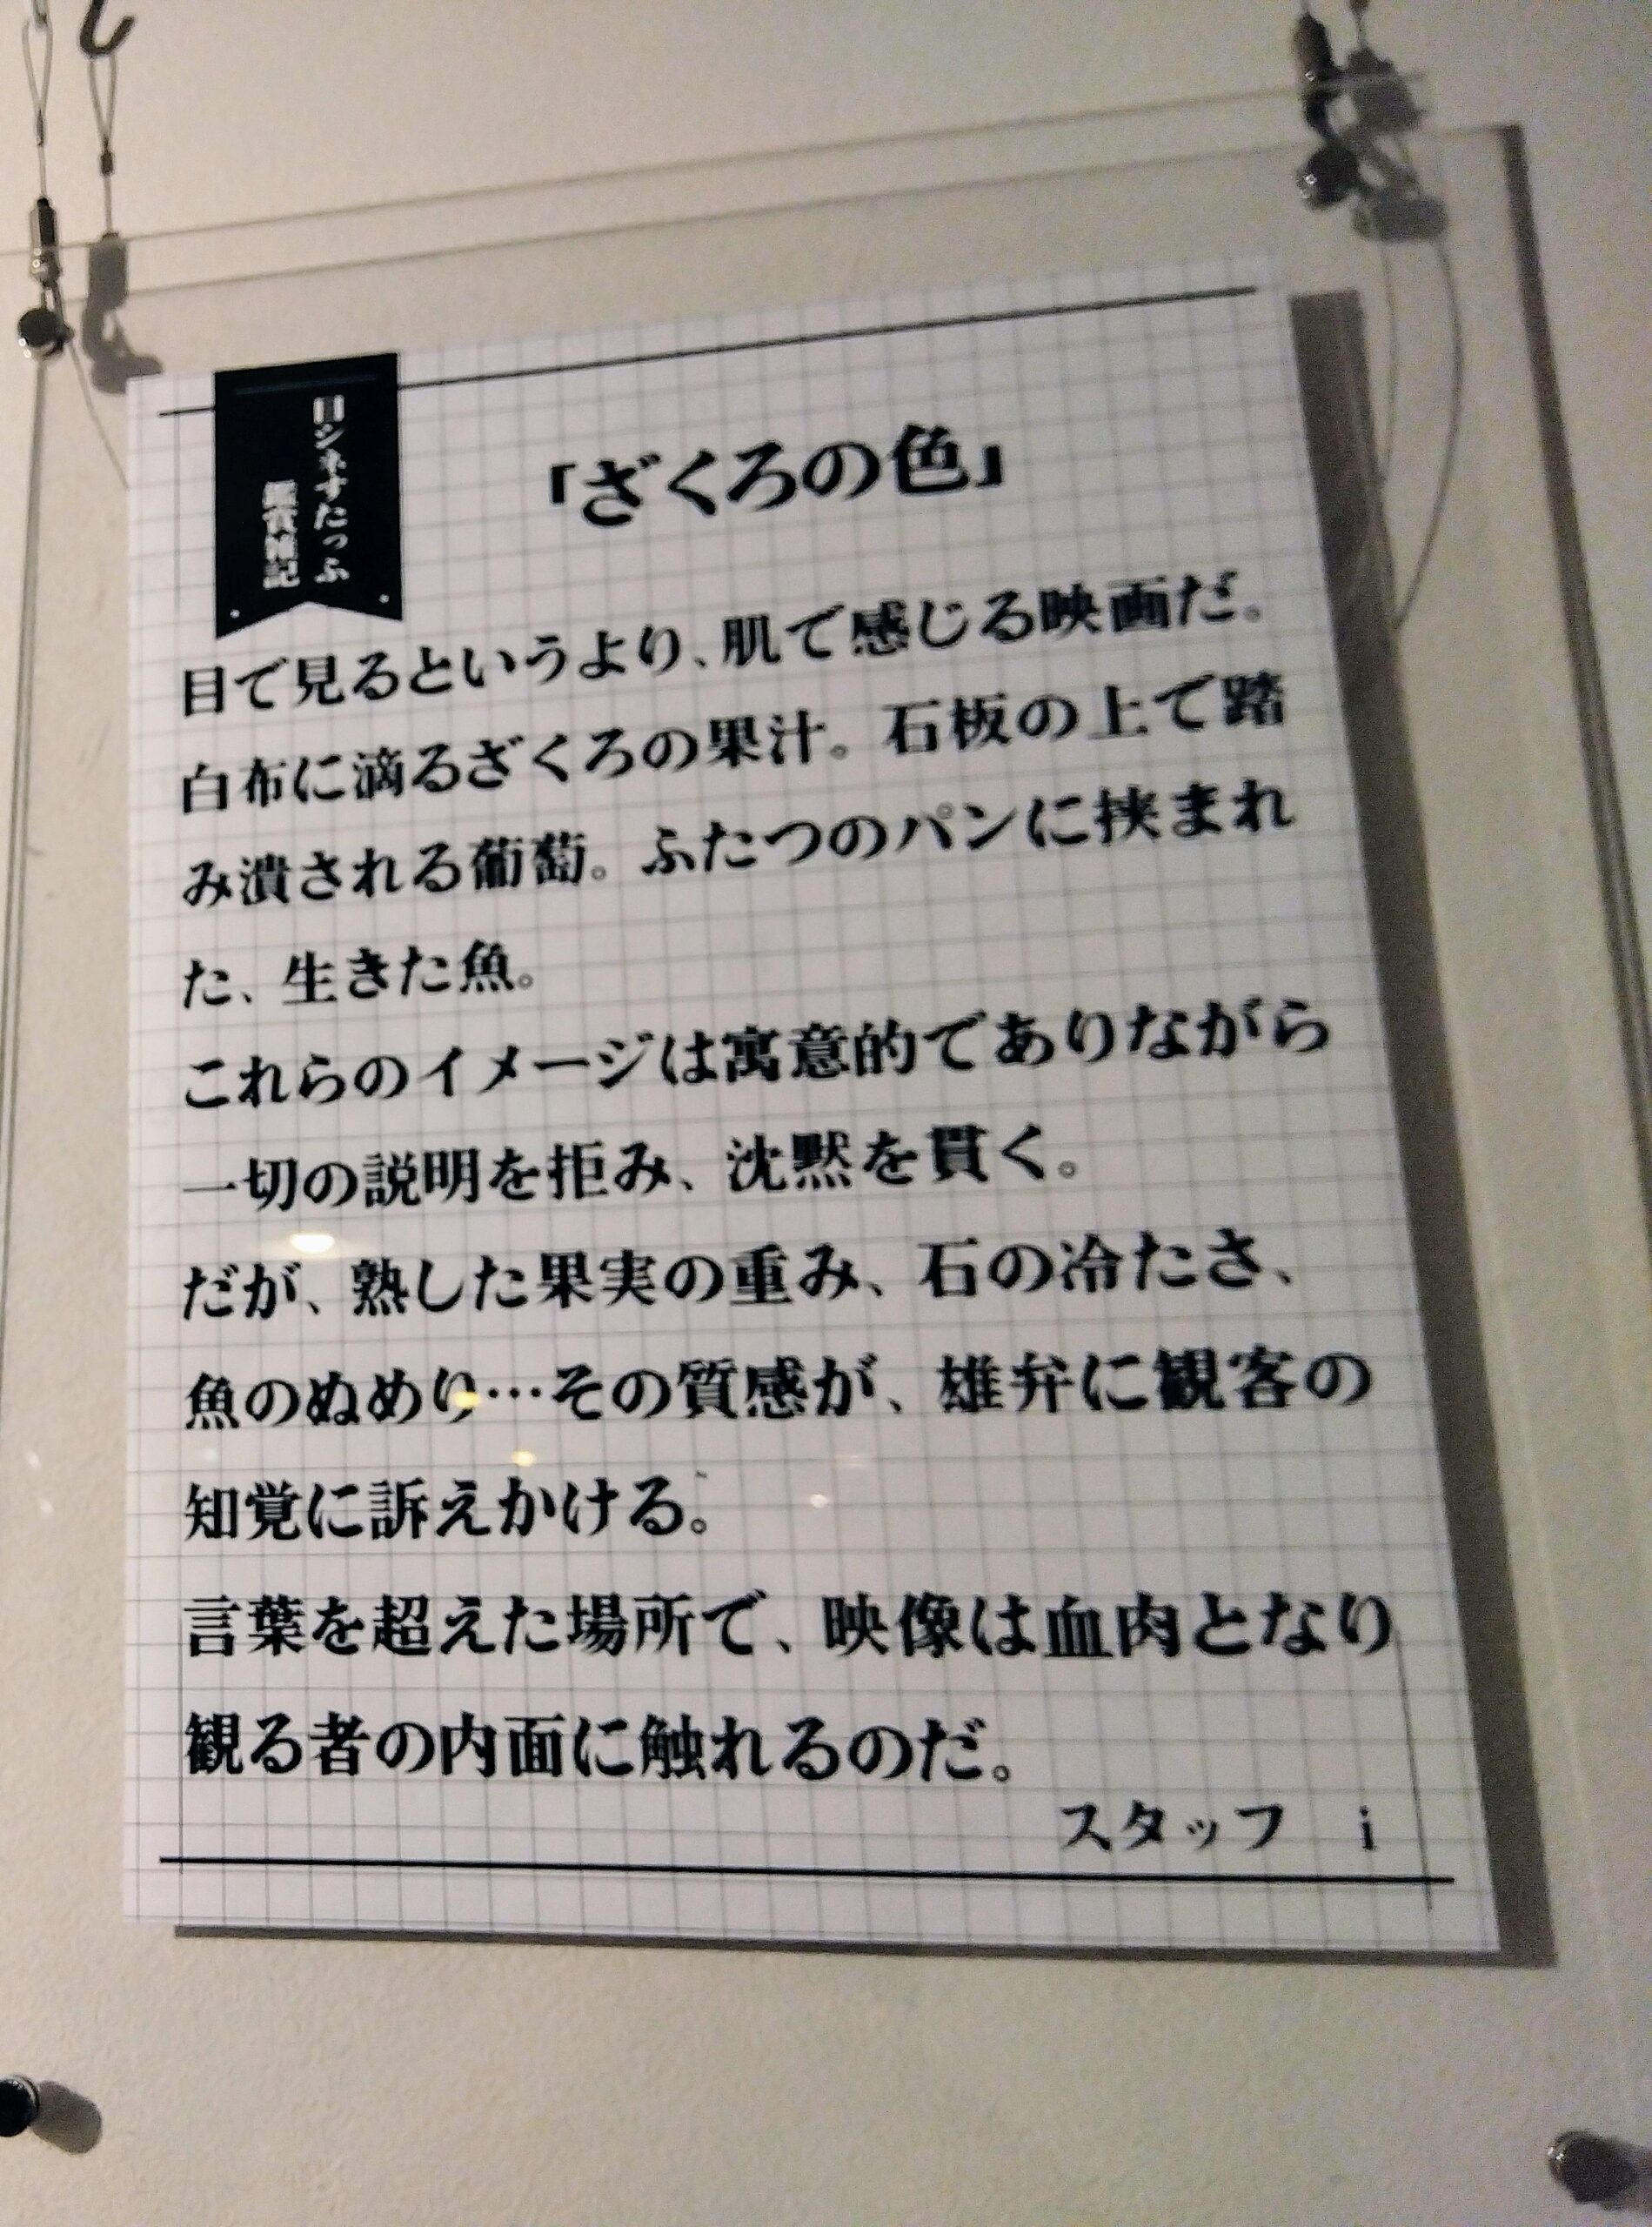 目シネすたっふ
鑑賞雑記
「ざくろの色」
目で見るというより、肌で感じる映画だ。
白布に滴るざくろの果汁。石板の上で踏
み潰される葡萄。ふたつのパンに挟まれ
た、生きた魚。
これらのイメージは寓意的でありながら
一切の説明を拒み、沈黙を貫く。
だが、熟した果実の重み、石の冷たさ、
魚のぬめり…その質感が、雄弁に観客の
知覚に訴えかける。
言葉を超えた場所で、映像は血肉となり
観る者の内面に触れるのだ。
スタッフ i